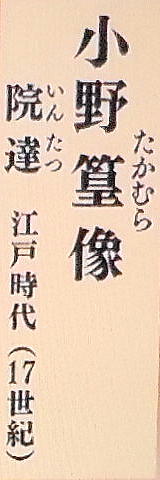 小野篁像
たかむら
院達 江戸時代（17世紀）
いんたつ